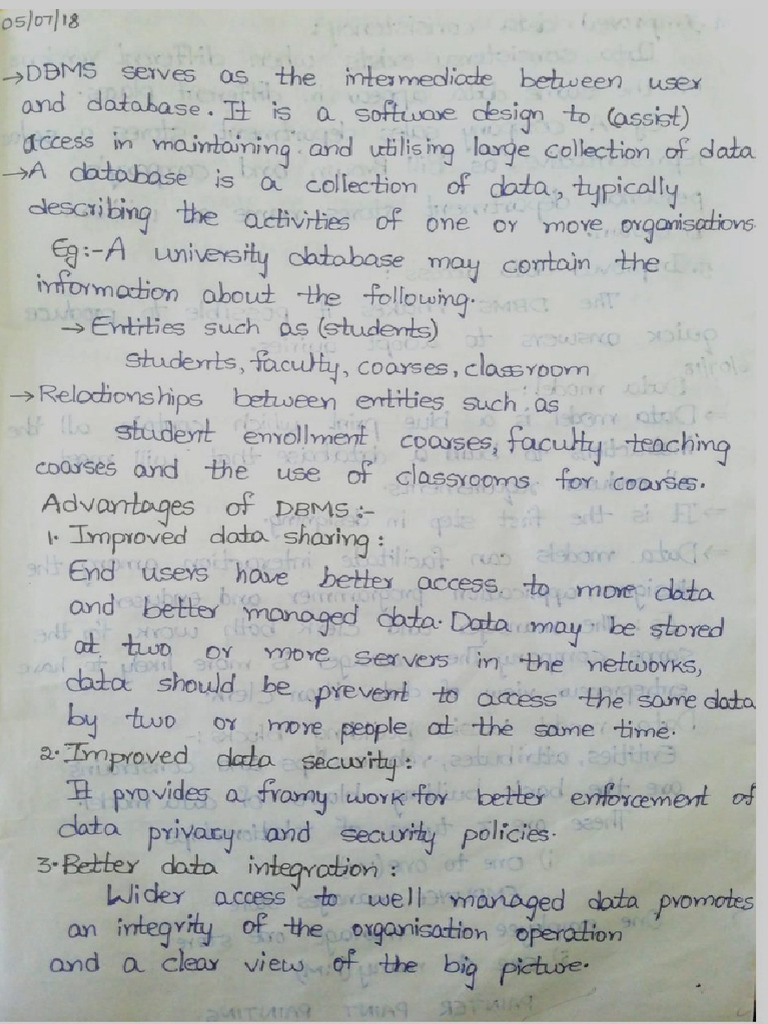 05/07/18
→DBMS serves as the intermediate between user
and database. It is a software design to (assist)
access in maintaining and utilising large collection of data
→A database is a collection of data, typically
describing the activities of one or more organisations.
Eg:-A university database may contain the
information about the following.
→Entities such as (students)
students, faculty, coarses, classroom
→Relationships between entities such as
student enrollment coarses, faculty teaching
coarses and the use of classrooms for coarses.
Advantages of DBMS:-
1. Improved data sharing:
End users have better access to more data
and better managed data. Data may be stored
at two or more servers in the networks,
data should be prevent to access the same data
by two or more people at the same time.
2. Improved data security:
It provides a framy work for better enforcement of
data privacy and security policies.
3. Better data integration:
Wider access to well managed data promotes
an integrity of the organisation operation
and a clear view of the big picture.